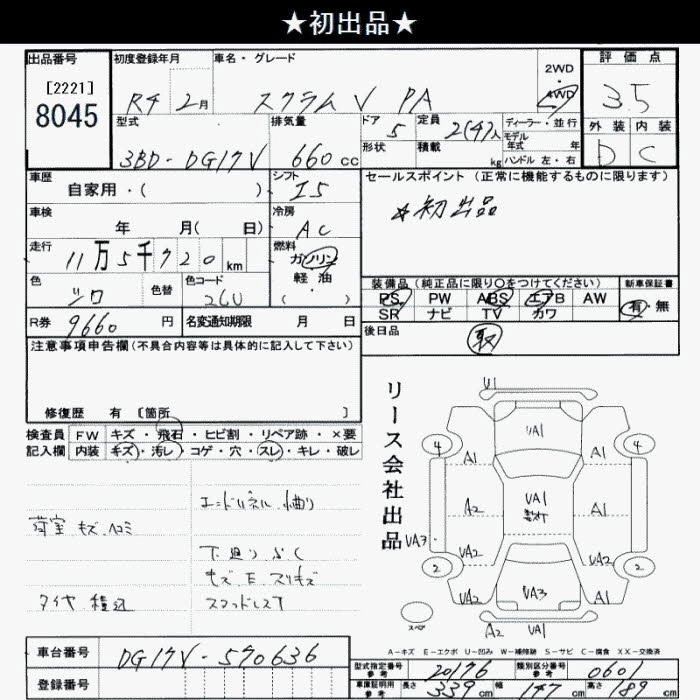 ★初出品★
出品番号 初度登録年月 車名・グレード 2WD 4WD 評価点
[2221]
8045
R4 2月 スクラムV PA 3.5
型式 排気量 ドア 定員 ディーラー・並行 外装 内装
5 2(4)人 モデル年式 年
3BD-DG17V 660cc 形状 積載 kg ハンドル 左・右 D C
車歴 シフト セールスポイント (正常に機能するものに限ります)
自家用・( ) I5
☆初出品
車検 冷房
年 月( 日) AC
走行 燃料
11万5千720km ガソリン
軽油
( ・ )
色 色替 色コード 装備品 (純正品に限り○をつけてください) 新車保証書
シロ 26U PS PW ABS エアB AW 有・無
SR ナビ TV カワ
R券 9660円 名変通知期限 月 日 後日品
取
注意事項申告欄 (不具合内容等は具体的に記入して下さい)
修復歴 有 [箇所 ]
検査員 FW キズ・飛石・ヒビ割・リペア跡・×要
記入欄 内装 キズ・汚レ・コゲ・穴・スレ・キレ・破レ
荷室 キズ ヘコミ
下廻り
タイヤ 積込
リース会社出品
U1
UA1
4 4
A1 A1
A2 UA1 A1
UA3
UA2 UA2
2 2
UA2 UA3 A1
スペア
A2 UA1
A-キズ E-エクボ U-凹み W-補修跡 S-サビ C-腐食 XX-交換済
車台番号 DG17V-570636
型式指定番号 参考 20176 類別区分番号 参考 0601
登録番号 車庫証明用 参考 長さ 339cm 幅 147cm 高さ 189cm